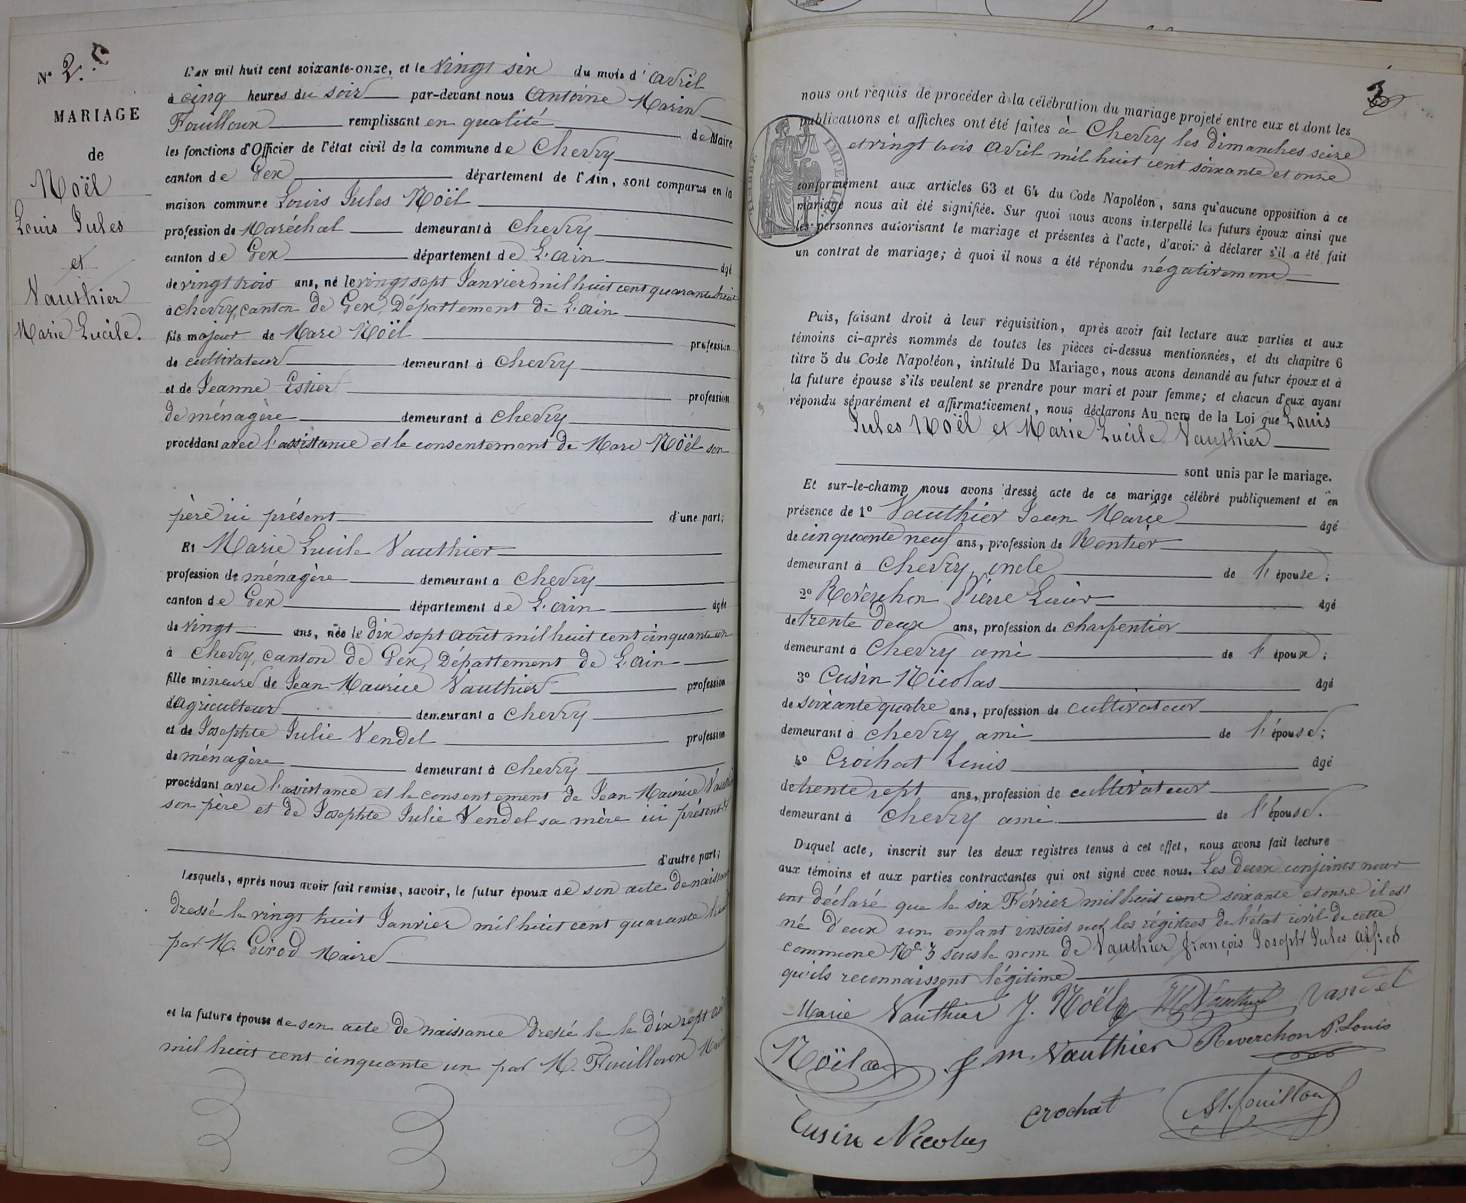 N° 2.
MARIAGE
de
Noël
Louis Jules
et
Vauthier
Marie Lucile.
L'AN mil huit cent soixante-onze, et le vingt six du mois d'avril
à cinq heures du soir par-devant nous Antoine Marin
Fouilloux remplissant en qualité de Maire
les fonctions d'Officier de l'état civil de la commune de Chevry
canton de Gex département de l'Ain, sont comparus en la
maison commune Louis Jules Noël
profession de Maréchal demeurant à Chevry
canton de Gex département de L'ain âgé
de vingt trois ans, né le vingt sept Janvier mil huit cent quarante huit
à chevry, canton de Gex, Département de L'ain
fils majeur de Marc Noël profession
de cultivateur demeurant à Chevry
et de Jeanne Estier profession
de ménagère demeurant à Chevry
procédant avec l'assistance et le consentement de Marc Noël son
père ici présent d'une part;
Et Marie Lucile Vauthier
profession de ménagère demeurant à Chevry
canton de Gex département de L'ain âgée
de vingt ans, née le dix sept août mil huit cent cinquante un
à Chevry, canton de Gex, Département de L'ain
fille mineure de Jean Maurice Vauthier profession
d'agriculteur demeurant à Chevry
et de Josephte Julie Vendel profession
de ménagère demeurant à Chevry
procédant avec l'assistance et le consentement de Jean Maurice Vauthier
son père et de Josephte Julie Vendel sa mère ici présents
d'autre part;
Lesquels, après nous avoir fait remise, savoir, le futur époux de son acte de naissance
dressé le vingt huit Janvier mil huit cent quarante huit
par M. Girod Maire
et la future épouse de son acte de naissance dressé le le dix sept août
mil huit cent cinquante un par M. Fouilloux Maire
3
nous ont requis de procéder à la célébration du mariage projeté entre eux et dont les
publications et affiches ont été faites à Chevry les dimanches seize
et vingt trois avril mil huit cent soixante et onze
conformément aux articles 63 et 64 du Code Napoléon, sans qu'aucune opposition à ce
mariage nous ait été signifiée. Sur quoi nous avons interpellé les futurs époux ainsi que
les personnes autorisant le mariage et présentes à l'acte, d'avoir à déclarer s'il a été fait
un contrat de mariage; à quoi il nous a été répondu négativement
Puis, faisant droit à leur réquisition, après avoir fait lecture aux parties et aux
témoins ci-après nommés de toutes les pièces ci-dessus mentionnées, et du chapitre 6
titre 5 du Code Napoléon, intitulé Du Mariage, nous avons demandé au futur époux et à
la future épouse s'ils veulent se prendre pour mari et pour femme; et chacun d'eux ayant
répondu séparément et affirmativement, nous déclarons Au nom de la Loi que Louis
Jules Noël et Marie Lucile Vauthier
sont unis par le mariage.
Et sur-le-champ nous avons dressé acte de ce mariage célébré publiquement et en
présence de 1° Vauthier Jean Marie âgé
de cinquante neuf ans, profession de Rentier
demeurant à Chevry, oncle de l'épouse;
2° Reverchon Pierre Louis âgé
de trente deux ans, profession de charpentier
demeurant à Chevry ami de l'époux;
3° Cusin Nicolas âgé
de soixante quatre ans, profession de cultivateur
demeurant à Chevry ami de l'épouse;
4° Crochat Louis âgé
de trente sept ans, profession de cultivateur
demeurant à Chevry ami de l'épouse.
Duquel acte, inscrit sur les deux registres tenus à cet effet, nous avons fait lecture
aux témoins et aux parties contractantes qui ont signé avec nous. Les deux conjoints nous
ont déclaré que le six Février mil huit cent soixante et onze il est
né d'eux un enfant inscrit sur les régistres de l'état civil de cette
commune N° 3 sous le nom de Vauthier françois Joseph Jules Alfred
qu'ils reconnaissent légitime
Marie Vauthier J. Noël
Noël J m. Vauthier Reverchon P. Louis
Cusin Nicolas crochat A M fouilloux